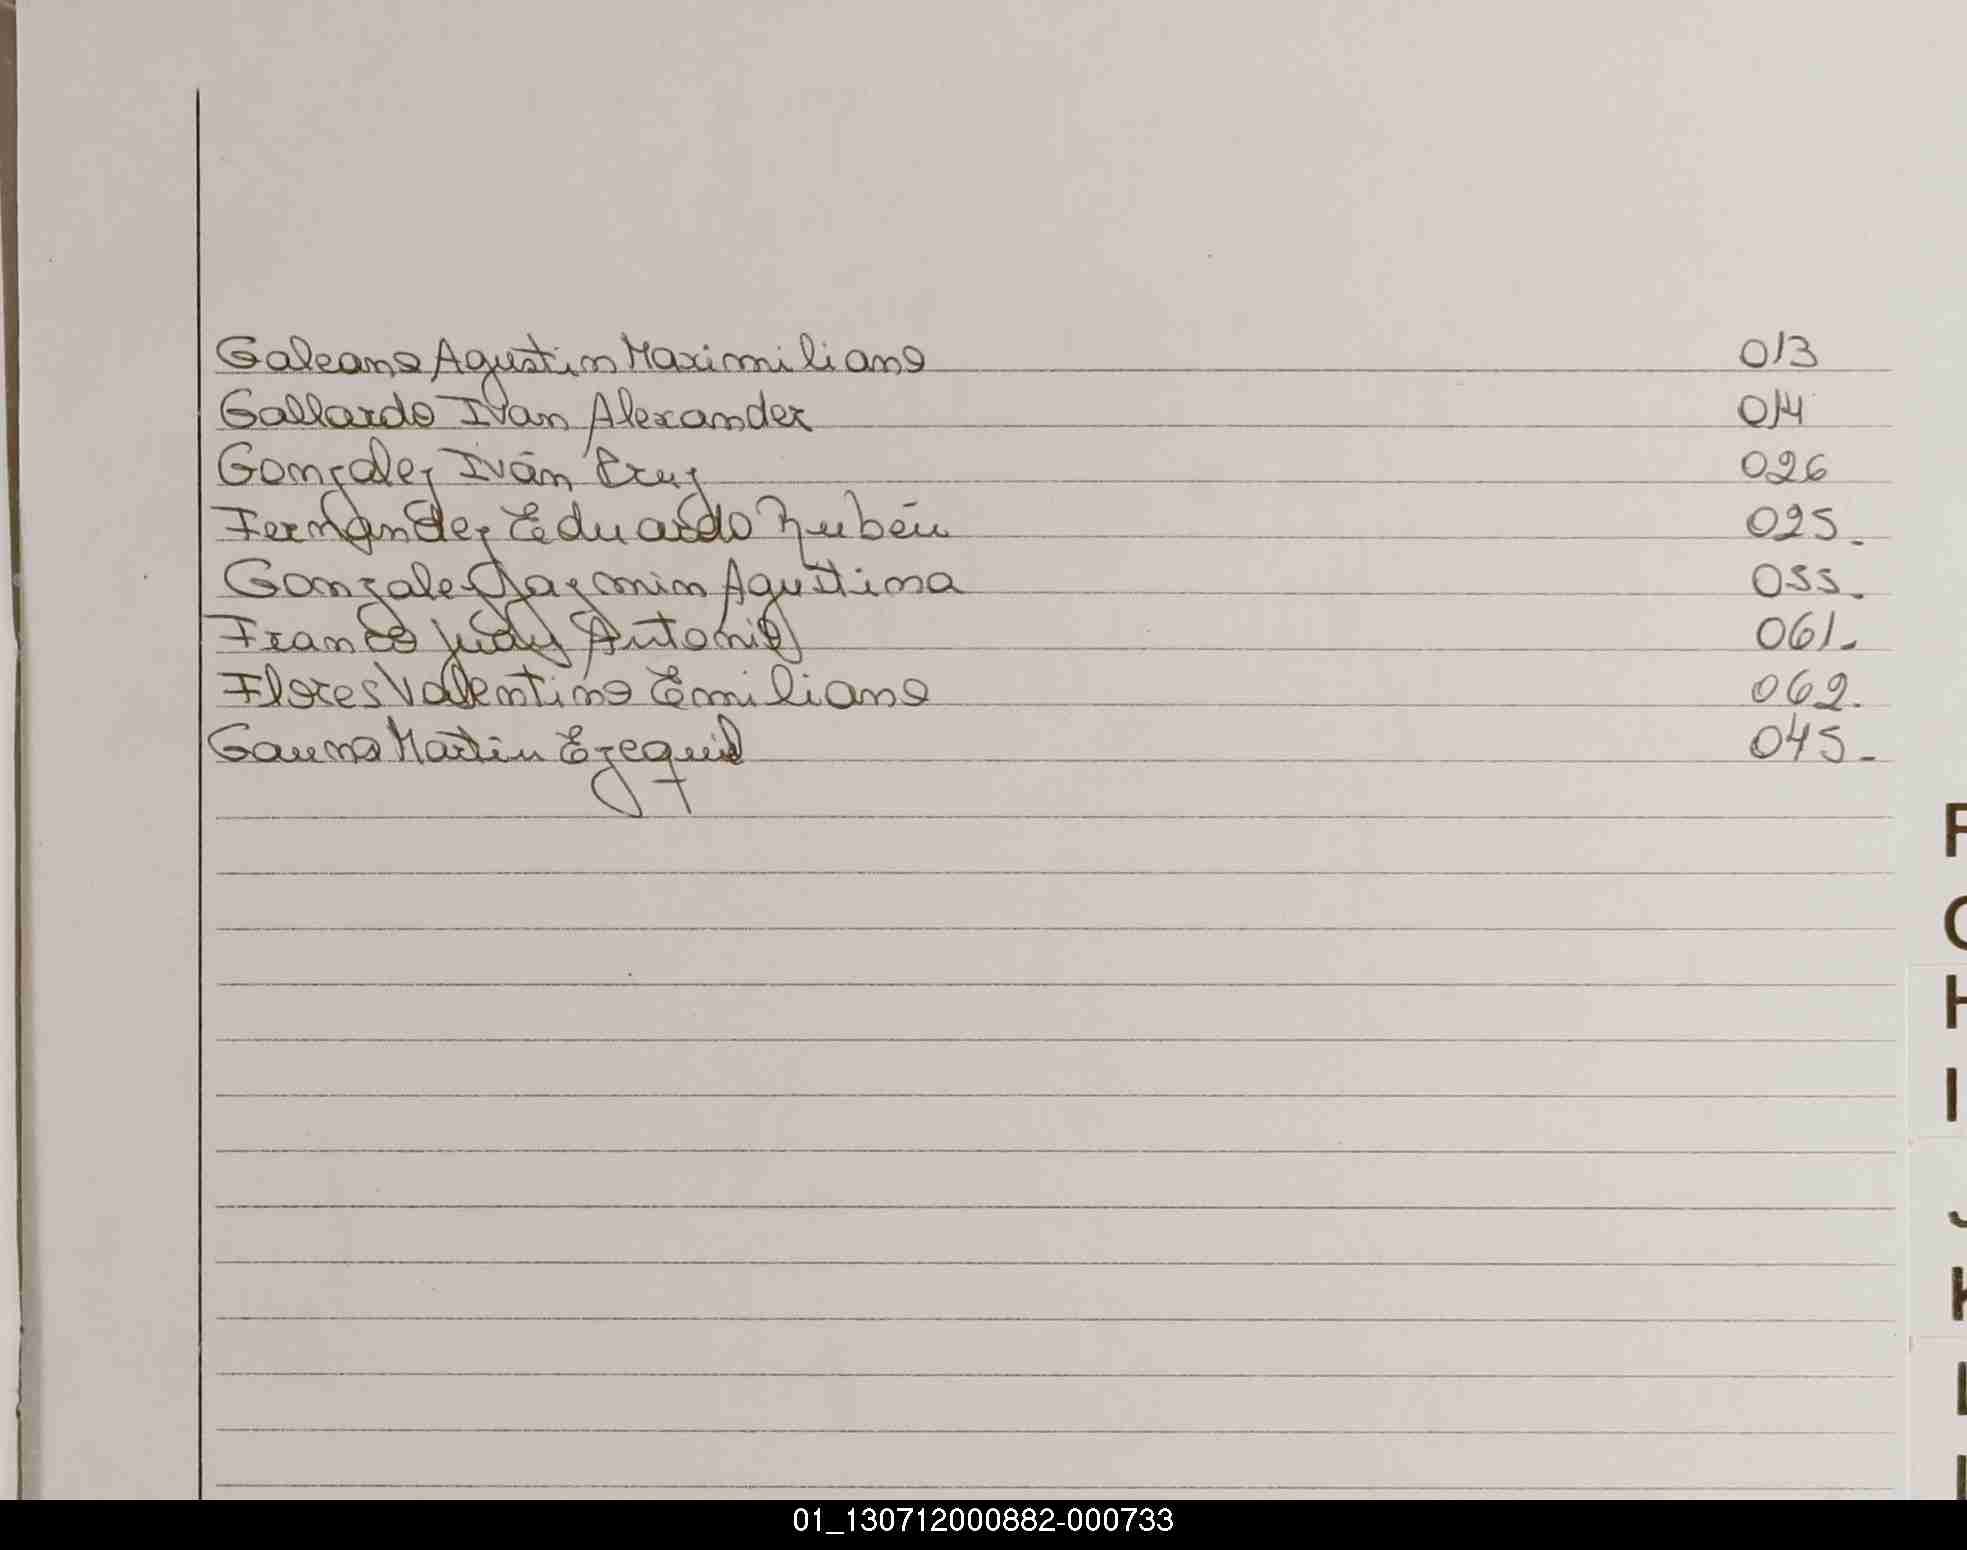 Galeano Agustin Maximiliano 013
Gallardo Ivan Alexander 014
Gonzalez Iván Cruz 026
Fernandez Eduardo Rubén 025.
Gonzalez Jazmin Agustina 055.
Franco Antonio 061.
Flores Valentino Emiliano 062.
Gauna Martin Ezequiel 045.
F
G
H
I
J
K
L
01_130712000882-000733